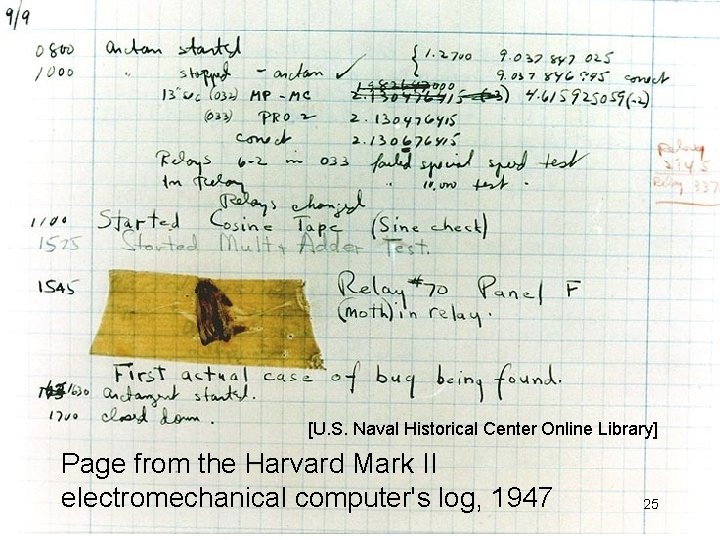 9/9
0800 arctan started { 1.2700 9.037 847 025
1000 " stopped - arctan ✓ { 9.037 846 995 correct
13" sec (032) MP - MC 2.130476415 (-3) 4.615925059(-2)
(033) PRO 2 2.130476415
correct 2.130676415
Relays 6-2 in 033 failed special speed test
In Relay " 10,000 test.
Relay
2145
Relay 337
Relays changed
1100 Started Cosine Tape (Sine check)
1525 Started Mult + Adder Test.
1545 Relay #70 Panel F
(moth) in relay.
First actual case of bug being found.
1630 arctangent started.
1700 closed down.
[U.S. Naval Historical Center Online Library]
Page from the Harvard Mark II
electromechanical computer's log, 1947
25